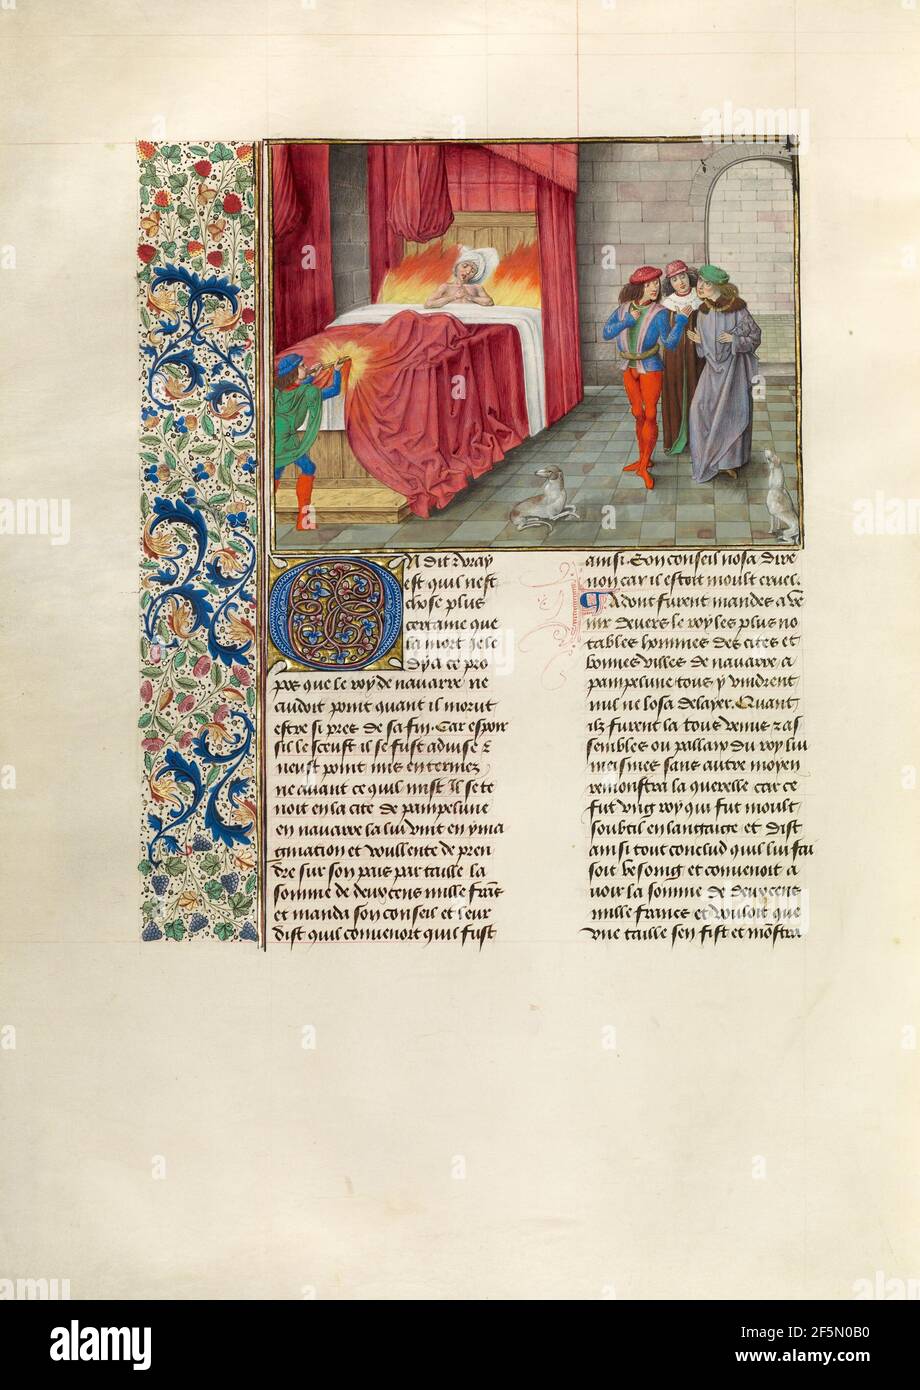 On dit & vray
est quil nest
chose plus
certaine que
la mort je le
dy a ce pro
pos que le roy de navarre ne
cuidoit point quant il morut
estre si pres de sa fin. Car espoir
sil le sceust il se fust advise &
neust point mis en termez
ne avant ce quil mist. Il se te
noit en la cite de pampelune
en navarre la lui vint en yma
gination et voullente de pren
dre sur son pais par taille la
somme de deux cens mille frans
et manda son conseil et leur
dist quil convenoit quil fust
ainsi. Son conseil nosa dire
non car il estoit moult cruel.
Adont furent mandes a ve
nir devers le roy les plus no
tables hommes des cites et
bonnes villes de navarre a
pampelune tous y vindrent
nul ne losa delayer. Quant
ilz furent la tous venus & as
sembles ou pallaix du roy lui
meismes sans autre moyen
remonstra la querelle car ce
fut ung roy qui fut moult
soubtil en langaige et dist
ainsi tout conclud quil lui fai
soit besoing et convenoit a
voir la somme de deux cens
mille francs et vouloit que
une taille sen fist et monstra
alamy
alamy
alamy
a
a
a
alamy
Image ID: 2F5N0B0
www.alamy.com